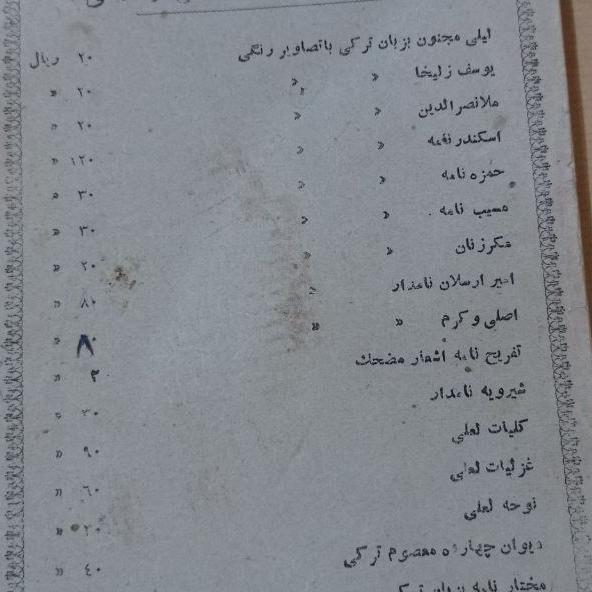 لیلی مجنون بزبان ترکی باتصاویر رنگی ۲۰ ریال
یوسف زلیخا » » ۲۰ »
ملانصرالدین » » ۲۰ »
اسکندرنامه » » ۱۲۰ »
حمزه نامه » » ۳۰ »
مسیب نامه » » ۳۰ »
مکرزنان » » ۲۰ »
امیر ارسلان نامدار » ۸۰ »
اصلی و کرم » » ۸۰ »
تفریح نامه اشعار مضحك ۳۰ »
شیرویه نامدار ۳۰ »
کلیات لعلی ۹۰ »
غزلیات لعلی ۶۰ »
نوحه لعلی ۲۰ »
دیوان چهارده معصوم ترکی ۴۰ »
مختار نامه بزبان ترکی